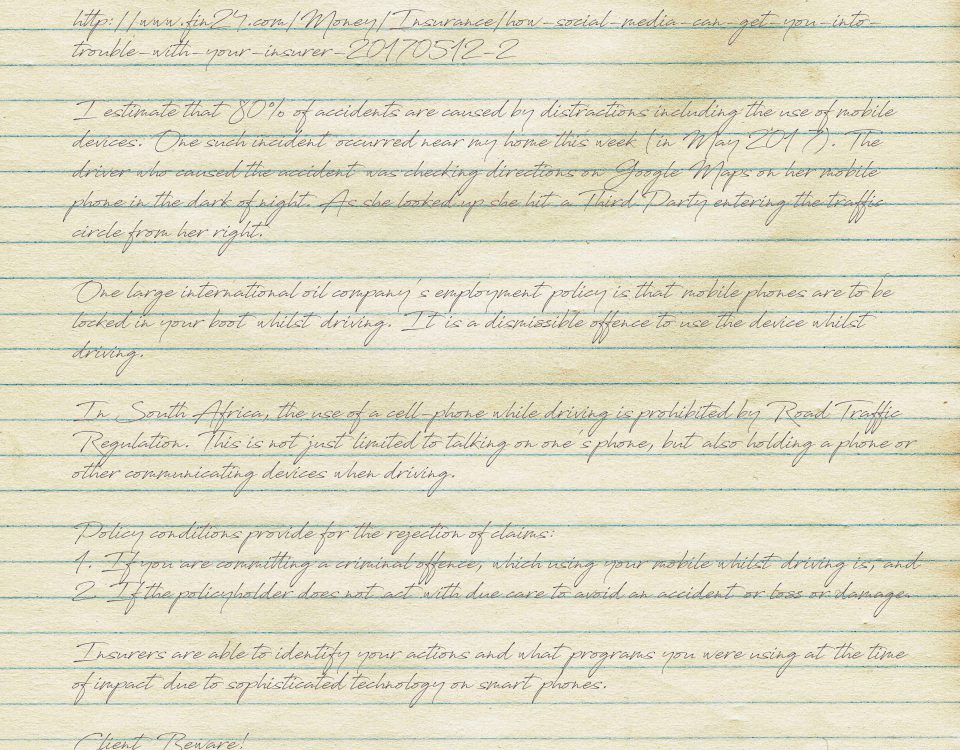 http://www.fin24.com/Money/Insurance/how-social-media-can-get-you-into-
trouble-with-your-insurer-20170512-2
I estimate that 80% of accidents are caused by distractions including the use of mobile
devices. One such incident occurred near my home this week (in May 2017). The
driver who caused the accident was checking directions on Google Maps on her mobile
phone in the dark of night. As she looked up she hit a Third Party entering the traffic
circle from her right.
One large international oil company's employment policy is that mobile phones are to be
locked in your boot whilst driving. It is a dismissible offence to use the device whilst
driving.
In South Africa, the use of a cell-phone while driving is prohibited by Road Traffic
Regulation. This is not just limited to talking on one's phone, but also holding a phone or
other communicating devices when driving.
Policy conditions provide for the rejection of claims:
1. If you are committing a criminal offence, which using your mobile whilst driving is, and
2. If the policyholder does not act with due care to avoid an accident or loss or damage.
Insurers are able to identify your actions and what programs you were using at the time
of impact due to sophisticated technology on smart phones.
Client Beware!